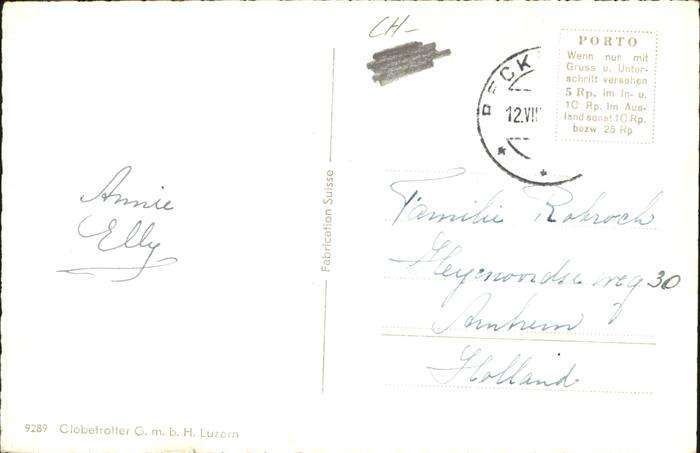 CH-
PORTO
Wenn nur mit
Gruss u. Unter-
schrift versehen
5 Rp. im In- u.
10 Rp. im Aus-
land sonst 10 Rp.
bezw 25 Rp
BECK
12.VIII
Annie
Elly
Fabrication Suisse
Familie Rohroch
Heyenoordseweg 30
Arnhem
Holland
9289 Globetrotter G. m. b. H. Luzern